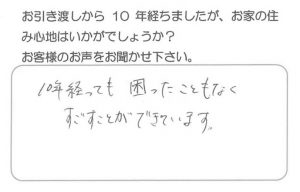 お引き渡しから 10 年経ちましたが、お家の住
み心地はいかがでしょうか？
お客様のお声をお聞かせ下さい。
10年経っても 困ったこともなく
すごすことができています。